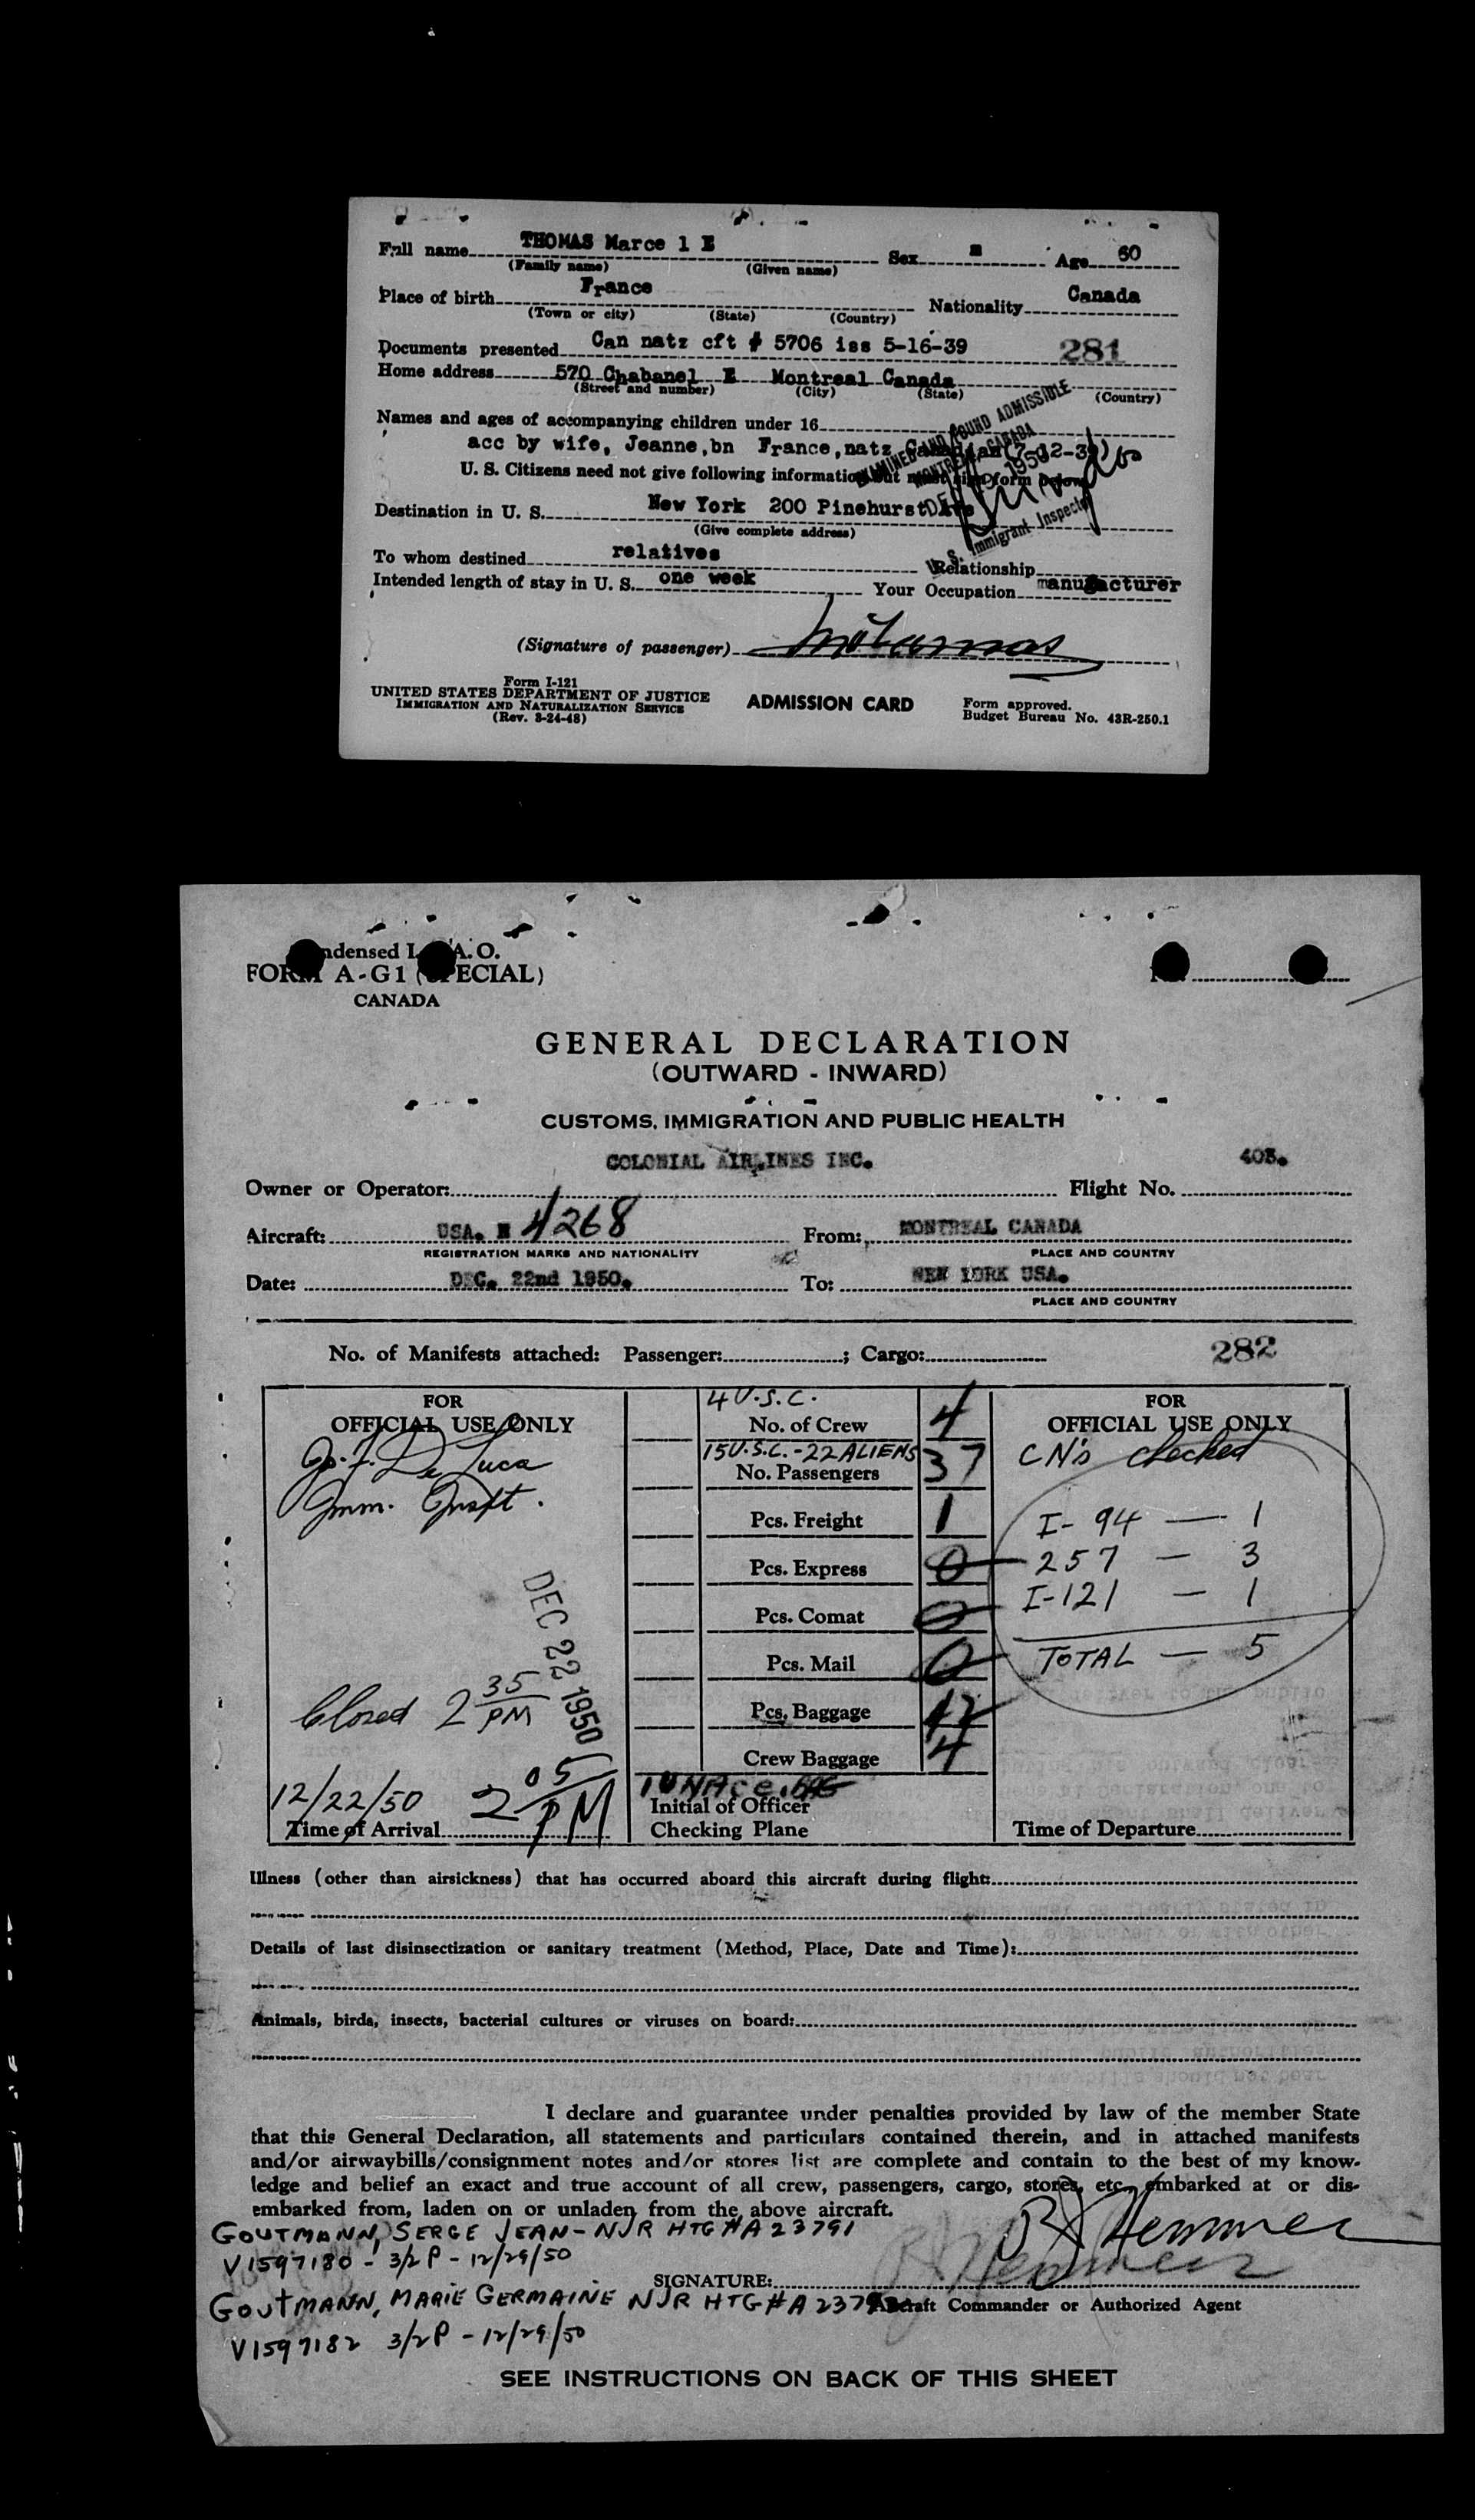 Full name THOMAS Marce l E Sex m Age 60
(Family name) (Given name)
Place of birth France Nationality Canada
(Town or city) (State) (Country)
Documents presented Can natz cft # 5706 iss 5-16-39 281
Home address 570 Chabanel E Montreal Canada
(Street and number) (City) (State) (Country)
Names and ages of accompanying children under 16
acc by wife, Jeanne,bn France,natz Canadian
EXAMINED AND FOUND ADMISSIBLE
MONTREAL CANADA
U. S. Citizens need not give following information but must sign form below
Destination in U. S. New York 200 Pinehurst Ave
(Give complete address)
U. S. Immigrant Inspector
To whom destined relatives Relationship
Intended length of stay in U. S. one week Your Occupation manufacturer
(Signature of passenger)
Form I-121
UNITED STATES DEPARTMENT OF JUSTICE
IMMIGRATION AND NATURALIZATION SERVICE
(Rev. 3-24-48)
ADMISSION CARD
Form approved.
Budget Bureau No. 43R-250.1
ndensed I. A. O.
FORM A-G1 (SPECIAL)
CANADA
GENERAL DECLARATION
(OUTWARD - INWARD)
CUSTOMS, IMMIGRATION AND PUBLIC HEALTH
COLONIAL AIRLINES INC. 403.
Owner or Operator: Flight No.
Aircraft: USA. N 4268 From: MONTREAL CANADA
REGISTRATION MARKS AND NATIONALITY PLACE AND COUNTRY
Date: DEC. 22nd 1950. To: NEW YORK USA.
PLACE AND COUNTRY
No. of Manifests attached: Passenger: ; Cargo: 282
FOR
OFFICIAL USE ONLY
De Luca
Imm. Inspt.
DEC 22 1950
Closed 2 35 PM
12/22/50 2 05 PM
Time of Arrival
4 U.S.C.
No. of Crew 4
15 U.S.C. - 22 ALIENS
No. Passengers 37
Pcs. Freight 1
Pcs. Express 0
Pcs. Comat 0
Pcs. Mail 0
Pcs. Baggage 17
Crew Baggage 4
Initial of Officer
Checking Plane
FOR
OFFICIAL USE ONLY
CN's checked
I-94 — 1
257 — 3
I-121 — 1
TOTAL — 5
Time of Departure
Illness (other than airsickness) that has occurred aboard this aircraft during flight:
Details of last disinsectization or sanitary treatment (Method, Place, Date and Time):
Animals, birds, insects, bacterial cultures or viruses on board:
I declare and guarantee under penalties provided by law of the member State
that this General Declaration, all statements and particulars contained therein, and in attached manifests
and/or airwaybills/consignment notes and/or stores list are complete and contain to the best of my know-
ledge and belief an exact and true account of all crew, passengers, cargo, stores, etc. embarked at or dis-
embarked from, laden on or unladen from the above aircraft.
GOUTMANN, SERGE JEAN - NJR HTG # A 23791
V1597180 - 3/2 P - 12/29/50
SIGNATURE:
GOUTMANN, MARIE GERMAINE NJR HTG # A 2379
Aircraft Commander or Authorized Agent
V1597182 3/2 P - 12/29/50
SEE INSTRUCTIONS ON BACK OF THIS SHEET